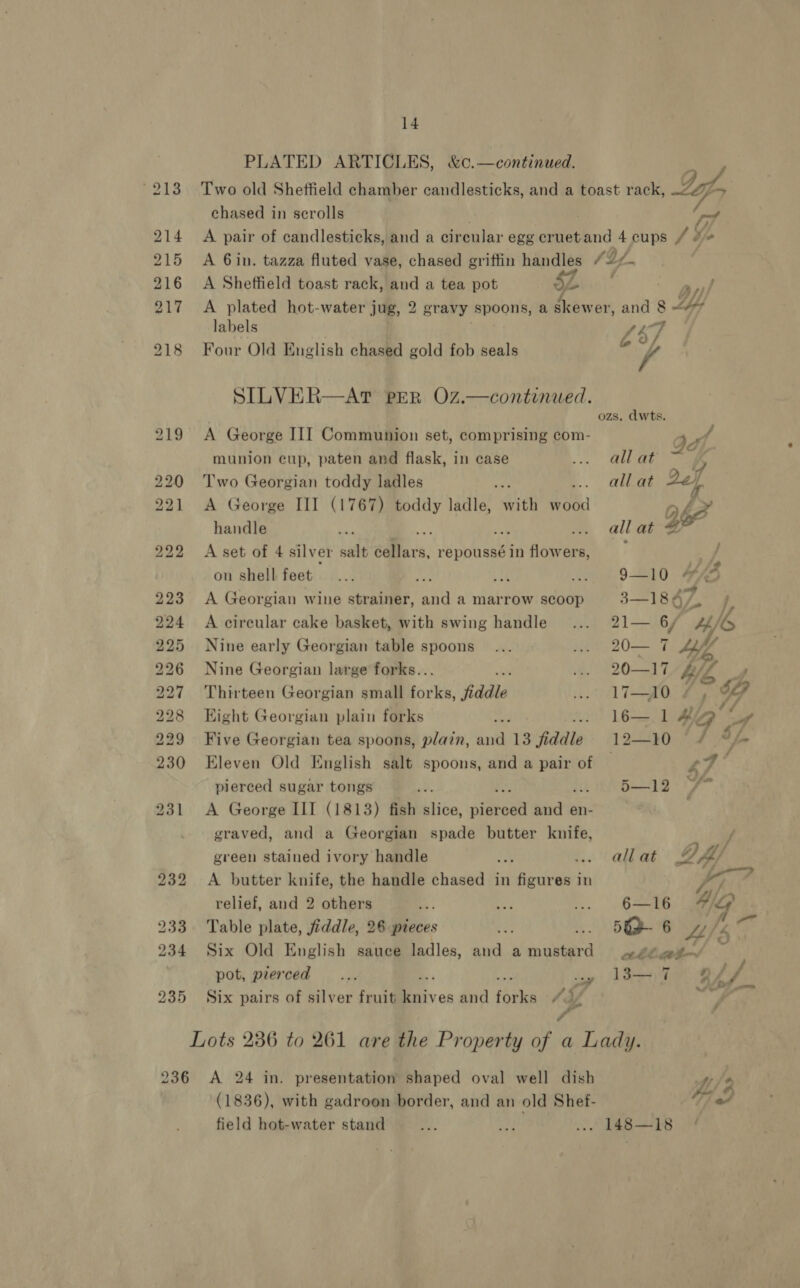 14
PLATED ARTICLES, &c.—continued.
213 Two old Sheffield chamber candlesticks, and a toast rack,
chased in scrolls
214 A pair of candlesticks, and a circular egg cruet and 4 cups
215 A 6in. tazza fluted vase, chased griffin handles
216 A Sheffield toast rack, and a tea pot
217 A plated hot-water jug, 2 gravy spoons, a skewer, and 8
labels
218 Four Old English chased gold fob seals
SILVER—AT PER OZ.—continued.
ozs. dwts.
219 A George III Communion set, comprising com-
munion cup, paten and flask, in case ... all at
220 Two Georgian toddy ladles ... ... all at
221 A George III (1767) toddy ladle, with wood
handle ... ... ... ... all at
222 A set of 4 silver salt cellars, repoussé in flowers,
on shell feet ... ... ... ... 9—10
223 A Georgian wine strainer, and a marrow scoop 3—18
224 A circular cake basket, with swing handle ... 21— 6
225 Nine early Georgian table spoons ... ... 20— 7
226 Nine Georgian large forks... ... ... 20—17
227 Thirteen Georgian small forks, fiddle ... 17—10
228 Eight Georgian plain forks ... ... 16— 1
229 Five Georgian tea spoons, plain, and 13 fiddle 12—10
230 Eleven Old English salt spoons, and a pair of
pierced sugar tongs ... ... ... 5—12
231 A George III (1813) fish slice, pierced and en-
graved, and a Georgian spade butter knife,
green stained ivory handle ... ... all at
232 A butter knife, the handle chased in figures in
relief, and 2 others ... ... ... 6—16
233 Table plate, fiddle, 26 pieces ... ... 6
234 Six Old English sauce ladles, and a mustard
pot, pierced ... ... ... 13— 7
235 Six pairs of silver fruit knives and forks
Lots 236 to 261 are the Property of a Lady.
236 A 24 in. presentation shaped oval well dish
(1836), with gadroon border, and an old Shef-
field hot-water stand ... ... ... 148—18